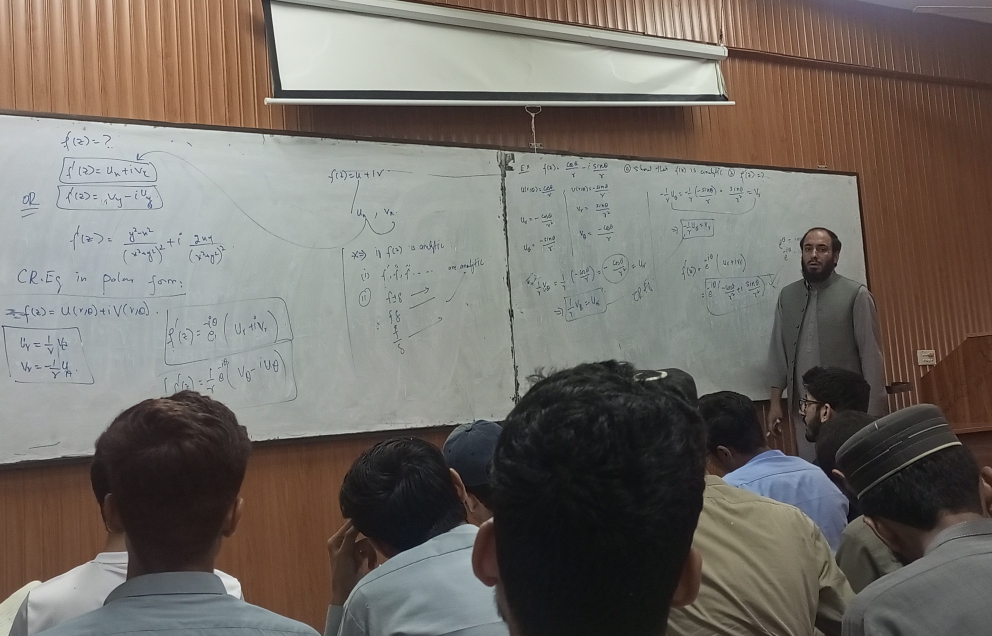 f'(z) = ?
f'(z) = Ux + iVx
OR
f'(z) = Vy - iUy
f'(z) = (y²-x²)/(x²+y²)² + i 2xy/(x²+y²)²
CR.Eq in polar form:
f(z) = U(r,θ) + iV(r,θ)
Ur = 1/r Vθ
Vr = -1/r Uθ
f'(z) = e^-iθ (Ur + iVr)
(Vθ - iUθ)
f(z) = u + iv
Ux , Vx
if f(z) is analytic
(i) f', f'', f''' - - - - are analytic
(ii) f±g
fg
f/g
f(z) = cosθ/r - i sinθ/r
show that f(z) is analytic
f'(z) = ?
U(r,θ) = cosθ/r
V(r,θ) = -sinθ/r
Ur = -cosθ/r²
Vr = sinθ/r²
Uθ = -sinθ/r
Vθ = -cosθ/r
1/r Vθ = 1/r (-cosθ/r) = -cosθ/r² = Ur
⇒ 1/r Vθ = Ur
-1/r Uθ = -1/r (-sinθ/r) = sinθ/r² = Vr
⇒ -1/r Uθ = Vr
f'(z) = e^-iθ (Ur + iVr)
= e^-iθ (-cosθ/r² + i sinθ/r²)